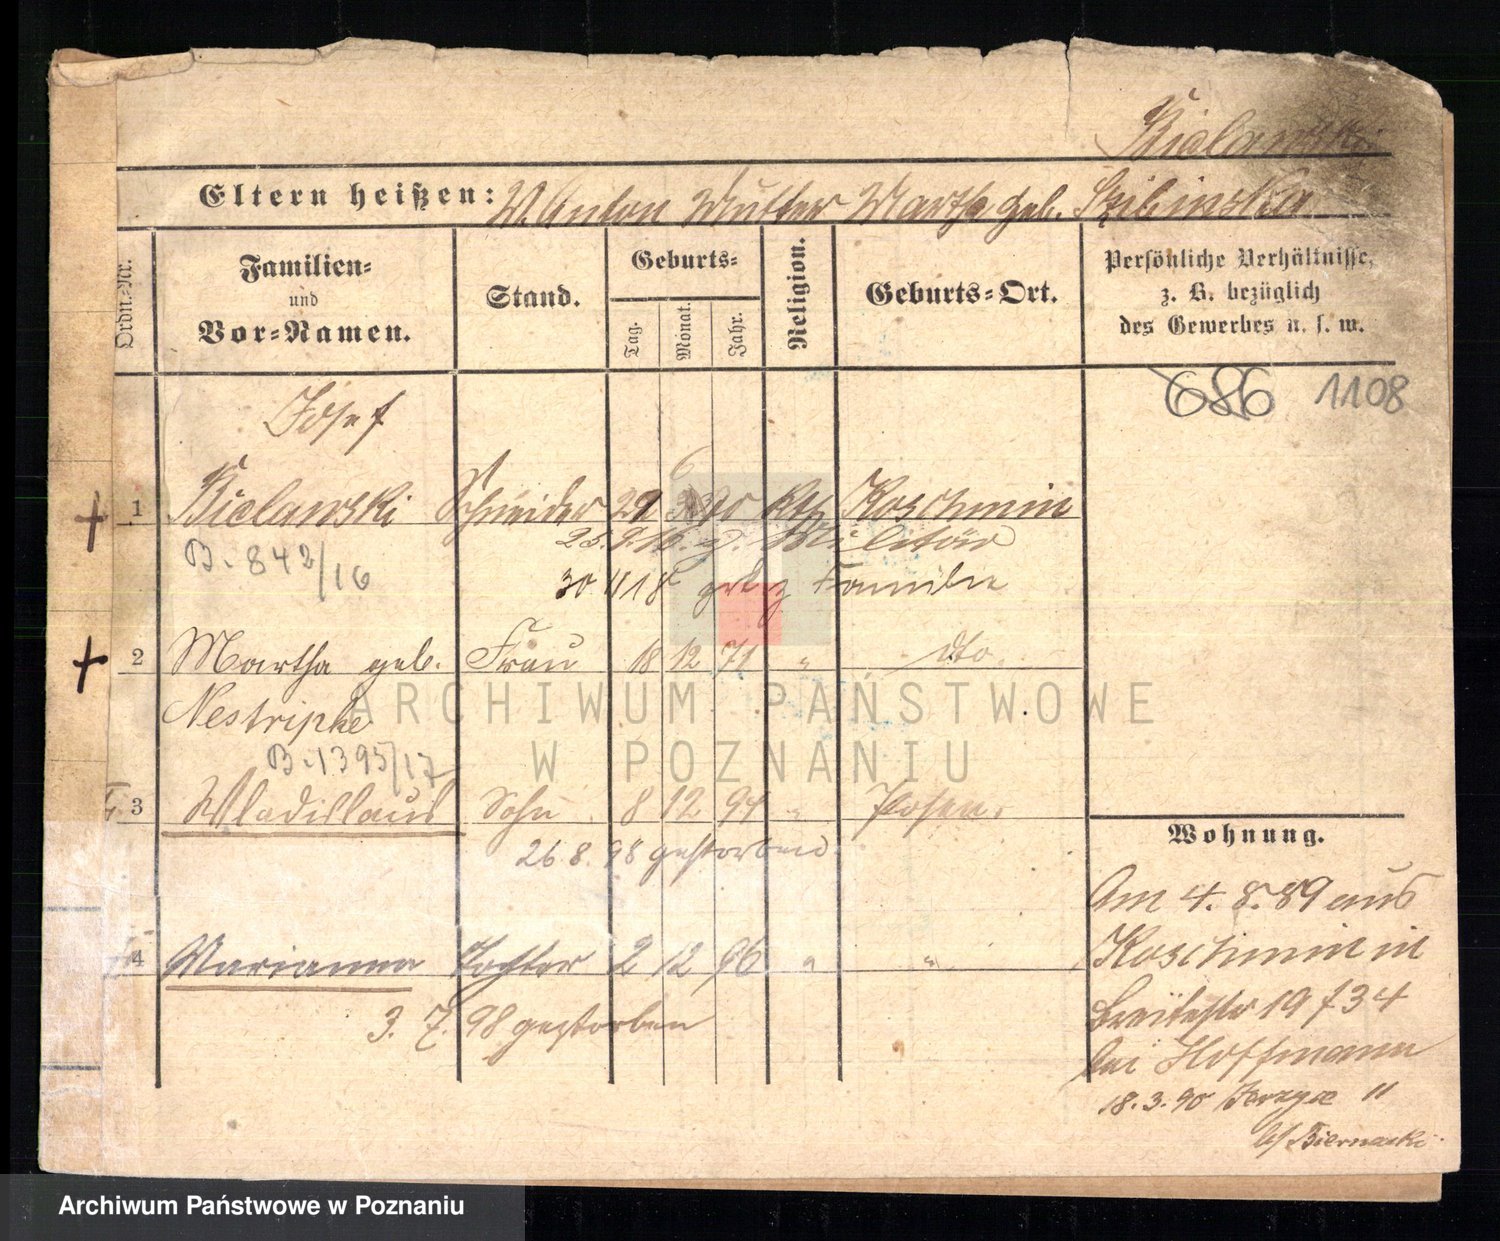 Bielawski
Eltern heißen: V. Anton Mutter Martha geb. Szibinska
Ordn.-Nr.
Familien-
und
Vor-Namen.
Stand.
Geburts-
Tag.
Monat.
Jahr.
Religion.
Geburts-Ort.
Persönliche Verhältnisse,
z. B. bezüglich
des Gewerbes u. s. w.
686 1108
Josef
1 Bielawski Schneider 29 6 70 kth Koschmin
25.9.16. z. Militär
B. 842/16
30 11 18 Familie
2 Martha geb. Frau 18 12 71 " dto.
Nestripke
B. 1395/17
3 Wladislaus Sohn 8 12 94 " Posen.
26 8. 98 gestorben
4 Marianna Tochter 2 12 96 " "
3. 7. 98 gestorben
Wohnung.
Am 4. 8. 89 aus
Koschmin in
Breitestr 19 f 34
bei Hoffmann
18. 3. 90 "
b/ Biernacki
ARCHIWUM PAŃSTWOWE
W POZNANIU
Archiwum Państwowe w Poznaniu